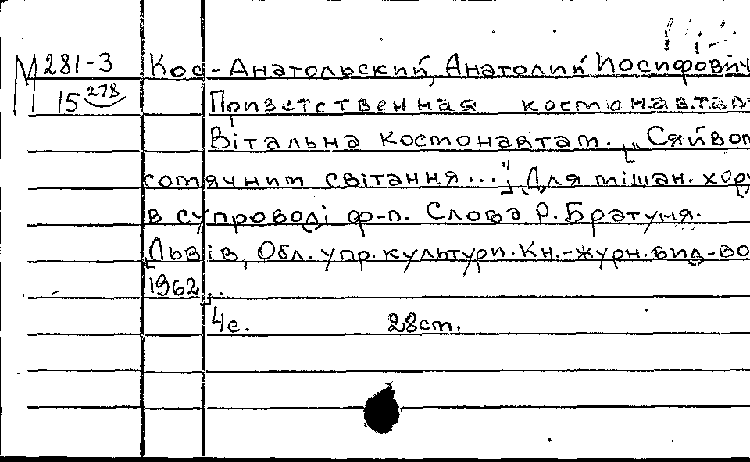 М 281-3 Кос-Анатольский, Анатолий Иосифович
15 278 Приветственная космонавтам
Вітальна космонавтам. „Сяйвом
сотячним світання..." Для мішан. хору
в супроводі ф-п. Слова Р. Братуня.
Львів, Обл. упр. культури. Кн.-журн. вид-во
1962.
4с. 28 cm.